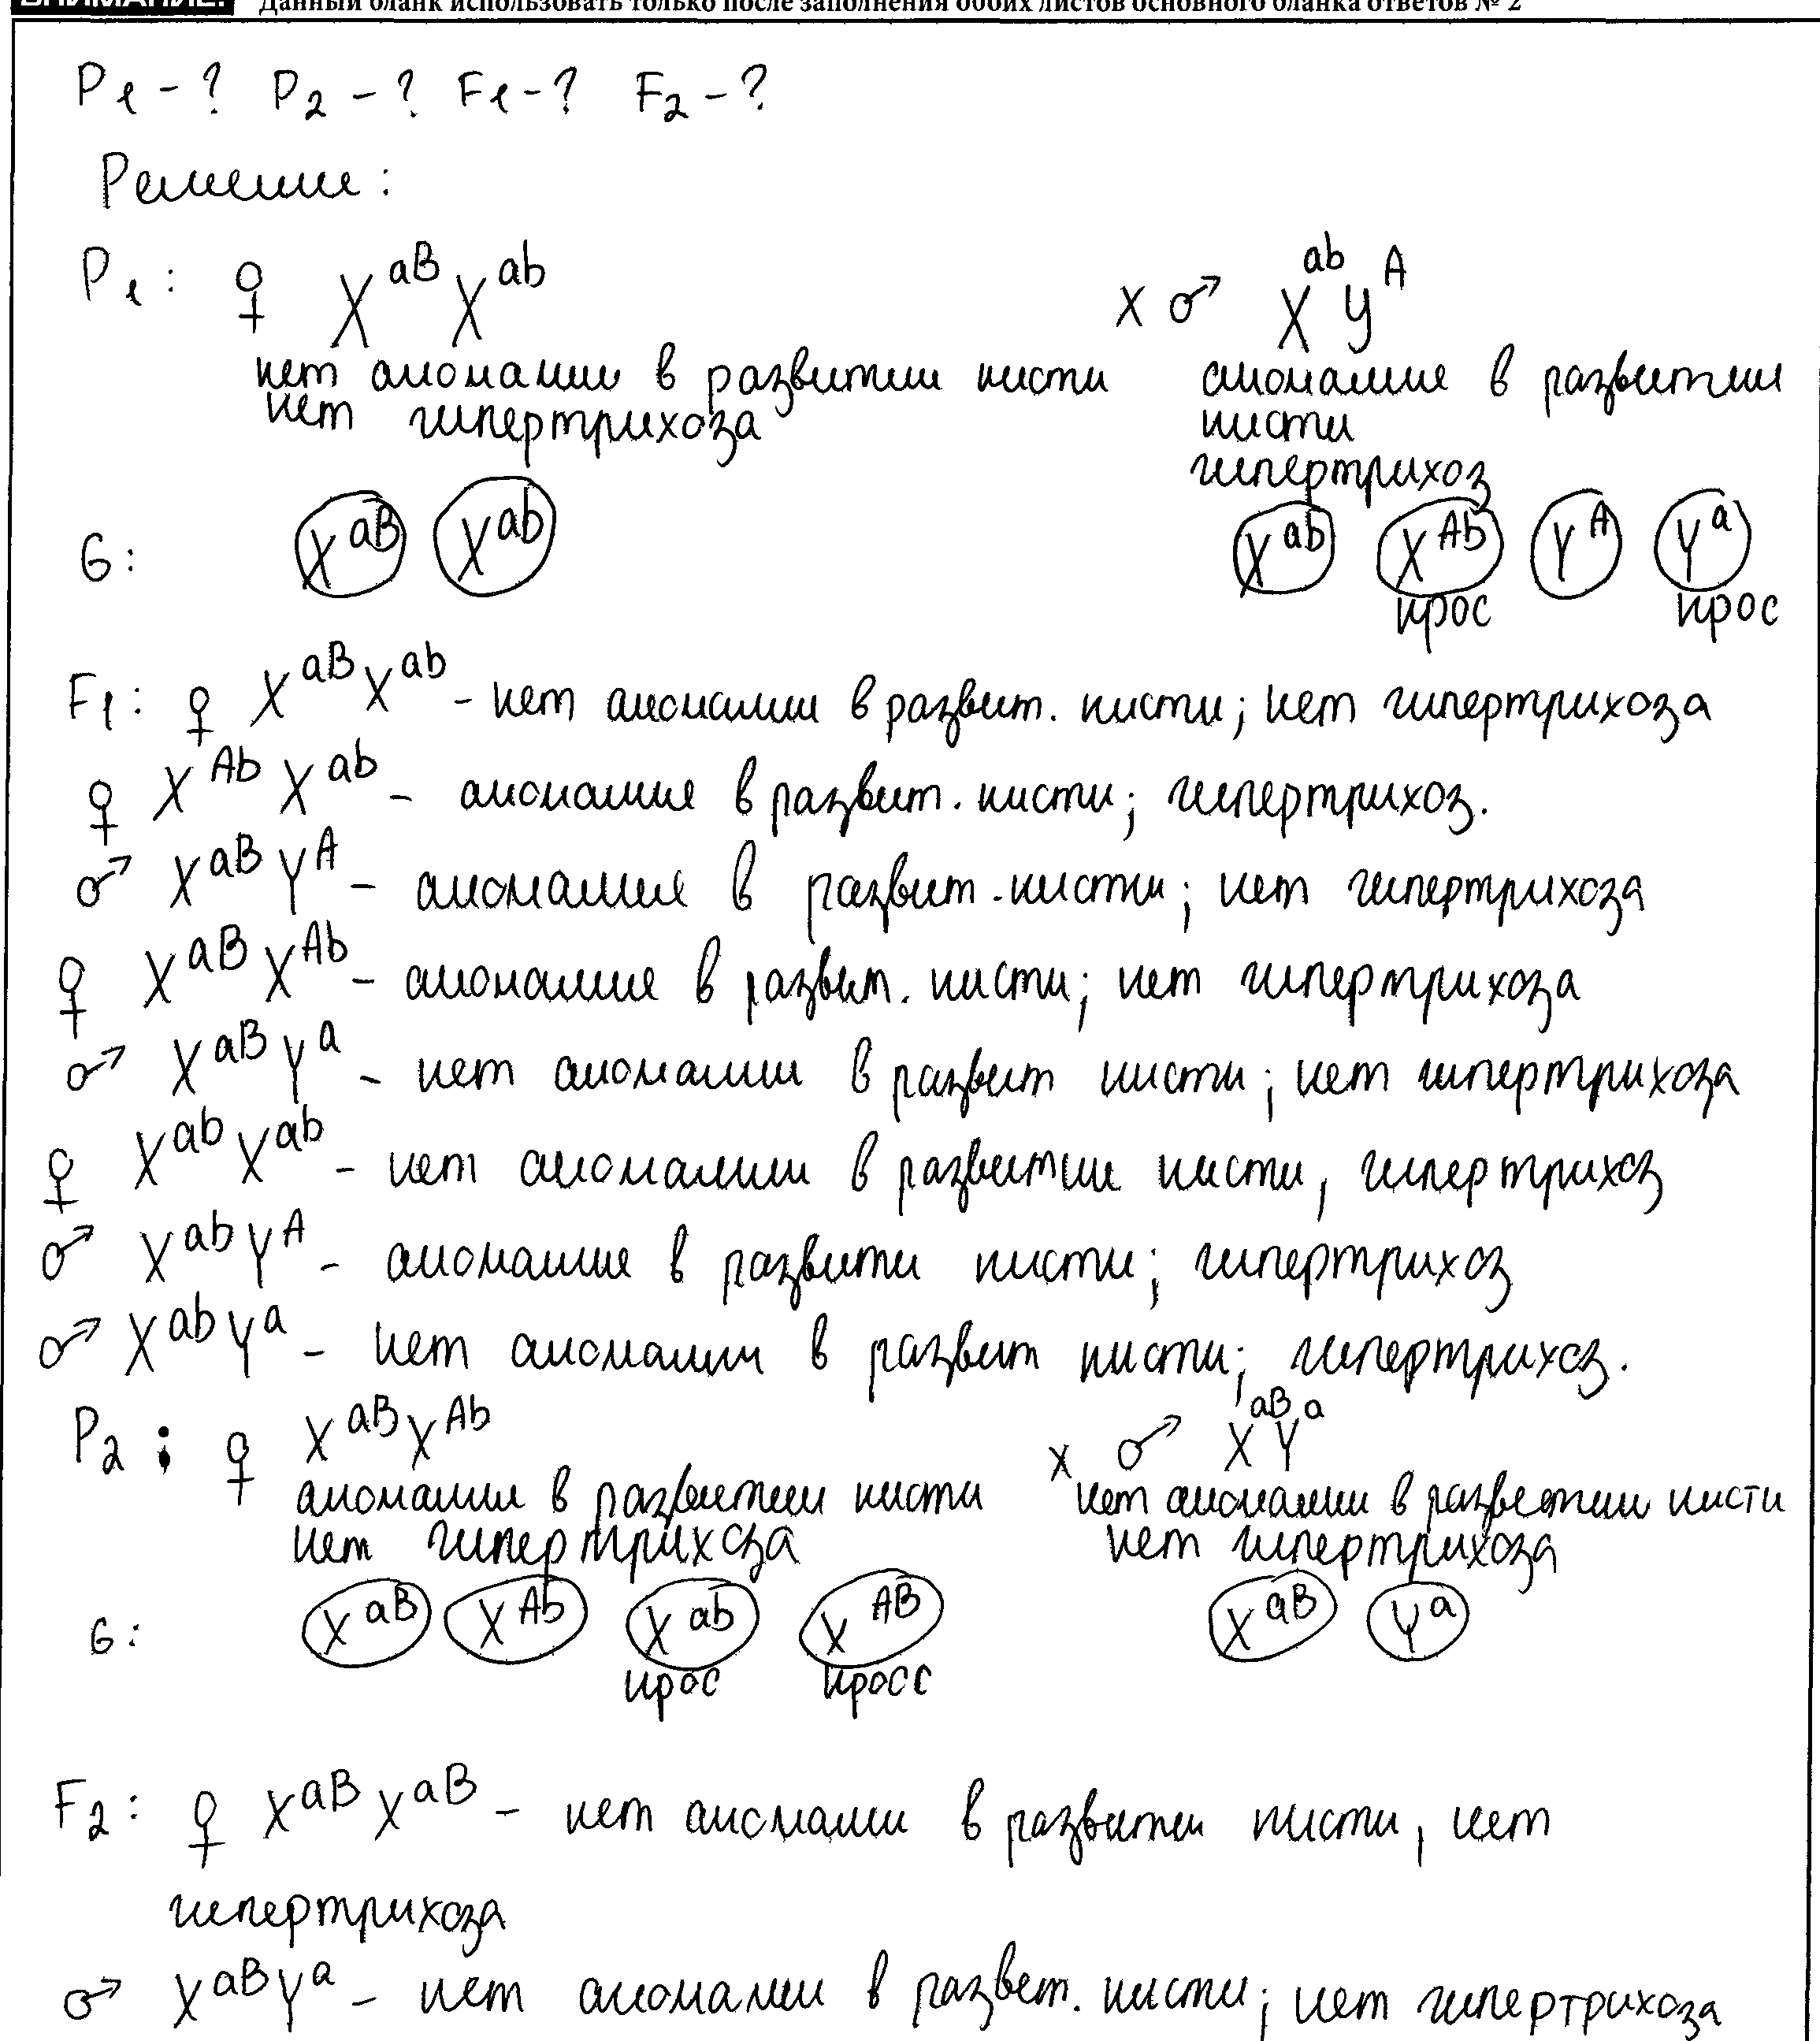 ВНИМАНИЕ! Данный бланк использовать только после заполнения обоих листов основного бланка ответов № 2
P1 - ? P2 - ? F1 - ? F2 - ?
Решение:
P1: ♀ X^aB X^ab x ♂ X^ab Y^A
нет аномалии в развитии кисти аномалия в развитии
нет гипертрихоза кисти
гипертрихоз
G: X^aB X^ab X^ab X^Ab Y^A Y^a
крос крос
F1: ♀ X^aB X^ab - нет аномалии в развит. кисти; нет гипертрихоза
♀ X^Ab X^ab - аномалия в развит. кисти; гипертрихоз.
♂ X^aB Y^A - аномалия в развит. кисти; нет гипертрихоза
♀ X^aB X^Ab - аномалия в развит. кисти; нет гипертрихоза
♂ X^aB Y^a - нет аномалии в развит кисти; нет гипертрихоза
♀ X^ab X^ab - нет аномалии в развитии кисти, гипертрихоз
♂ X^ab Y^A - аномалия в развити кисти; гипертрихоз
♂ X^ab Y^a - нет аномалии в развит кисти; гипертрихоз.
P2: ♀ X^aB X^Ab x ♂ X^aB Y^a
аномалия в развитии кисти нет аномалии в разветии кисти
нет гипертрихоза нет гипертрихоза
G: X^aB X^Ab X^ab X^AB X^aB Y^a
крос кросс
F2: ♀ X^aB X^aB - нет аномалии в развитии кисти, нет
гипертрихоза
♂ X^aB Y^a - нет аномалии в развет. кисти; нет гипертрихоза